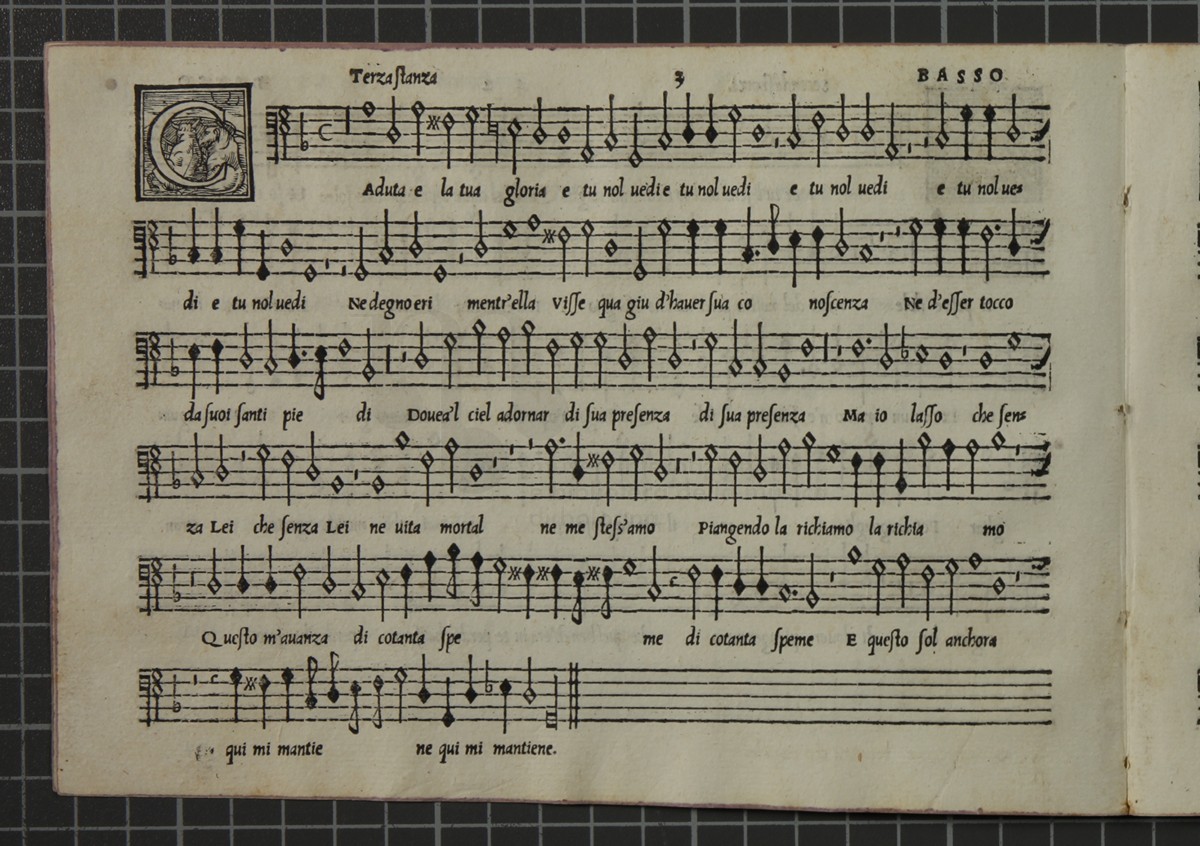 Terza ſtanza 3 BASSO
C Aduta e la tua gloria e tu nol uedi e tu nol uedi e tu nol uedi e tu nol ue=
di e tu nol uedi Ne degno eri mentr'ella Viſſe qua giu d'hauer ſua co noſcenza Ne d'eſſer tocco
da ſuoi ſanti pie di Douea'l ciel adornar di ſua preſenza di ſua preſenza Ma io laſſo che ſen=
za Lei che ſenza Lei ne uita mortal ne me ſteſs'amo Piangendo la richiamo la richia mo
Queſto m'auanza di cotanta ſpe me di cotanta ſpeme E queſto ſol anchora
qui mi mantie ne qui mi mantiene.